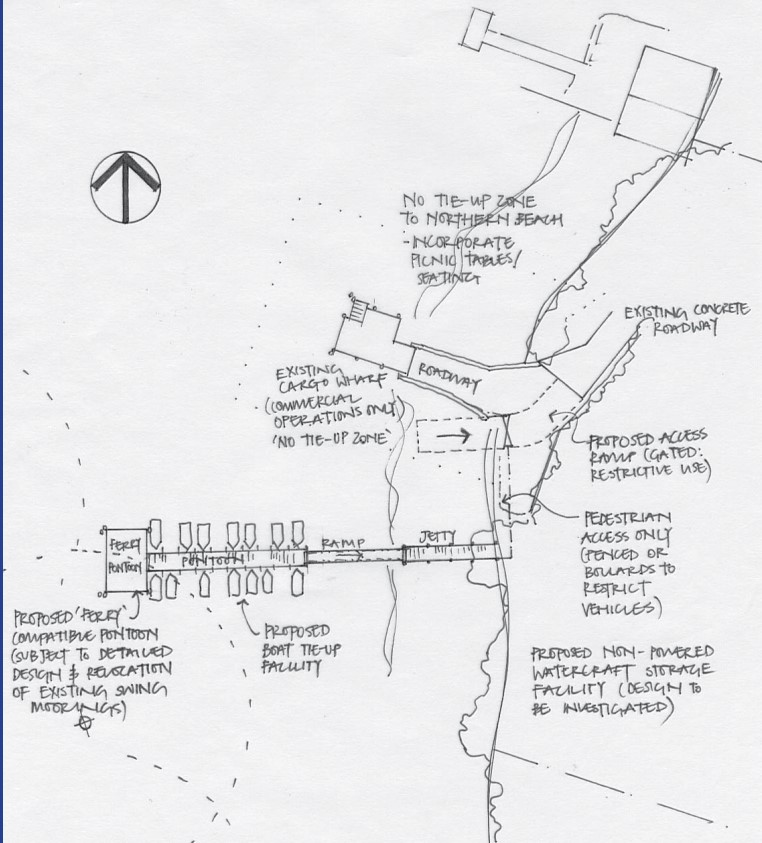 NO TIE-UP ZONE
TO NORTHERN BEACH
- INCORPORATE
PICNIC TABLES/
SEATING
EXISTING CONCRETE
ROADWAY
EXISTING
CARGO WHARF
(COMMERCIAL
OPERATIONS ONLY)
'NO TIE-UP ZONE'
ROADWAY
PROPOSED ACCESS
RAMP (GATED:
RESTRICTIVE USE)
PEDESTRIAN
ACCESS ONLY
(FENCED OR
BOLLARDS TO
RESTRICT
VEHICLES)
FERRY
PONTOON
PONTOON
RAMP
JETTY
PROPOSED 'FERRY'
COMPATIBLE PONTOON
(SUBJECT TO DETAILED
DESIGN & RELOCATION
OF EXISTING SWING
MOORINGS)
PROPOSED
BOAT TIE-UP
FACILITY
PROPOSED NON-POWERED
WATERCRAFT STORAGE
FACILITY (DESIGN TO
BE INVESTIGATED)